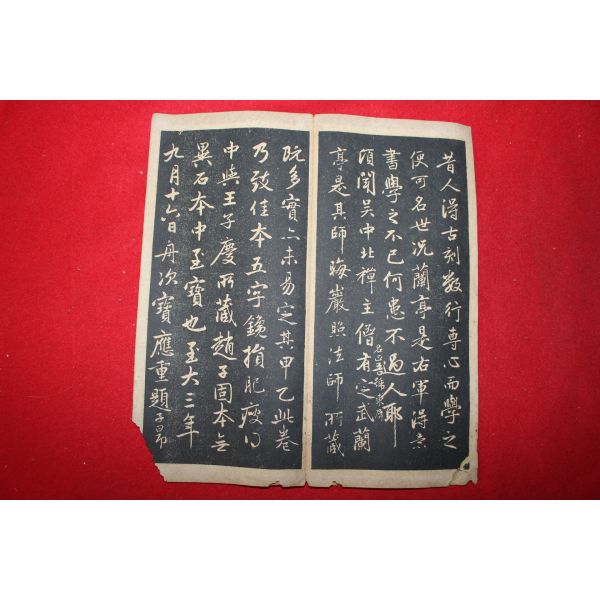 昔人得古刻數行專心而學之
便可名世况蘭亭是右軍得意
書學之不已何患不過人耶
頃聞吳中北禪主僧名正吾號東屏有定武蘭
亭是其師晦巖照法師所藏
既多實亦未易定其甲乙此卷
乃致佳本五字鑱損肥瘦得
中與王子慶所藏趙子固本無
異石本中至寶也至大三年
九月十六日舟次寶應重題子昂